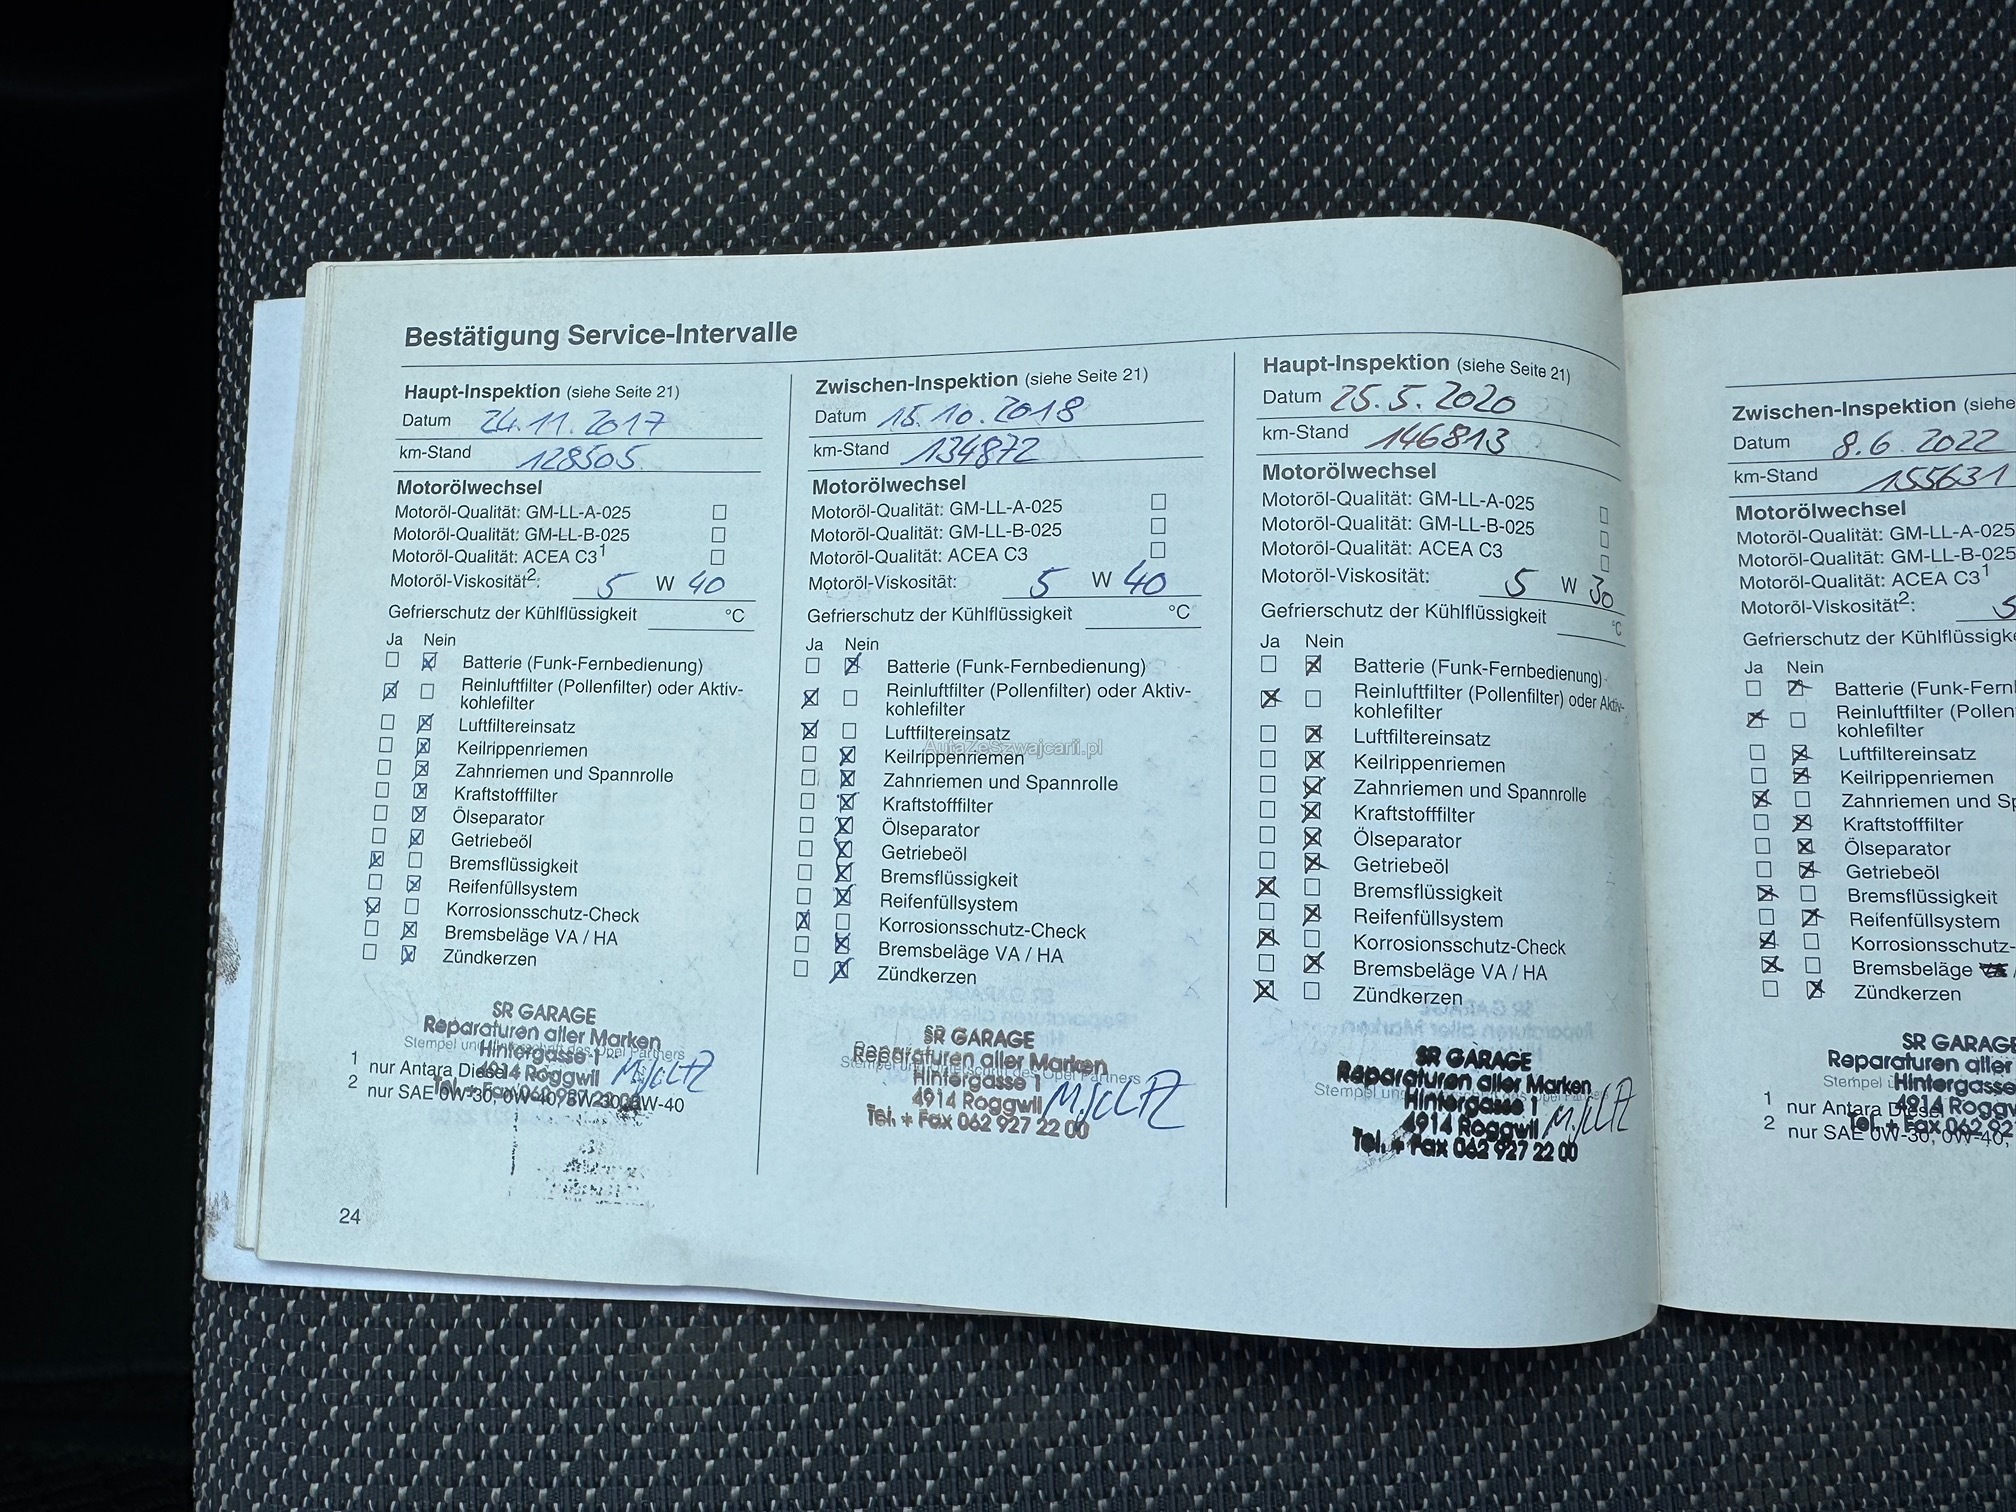 Bestätigung Service-Intervalle
Haupt-Inspektion (siehe Seite 21)
Datum 24.11.2017
km-Stand 128505
Motorölwechsel
Motoröl-Qualität: GM-LL-A-025
Motoröl-Qualität: GM-LL-B-025
Motoröl-Qualität: ACEA C3¹
Motoröl-Viskosität²: 5 W 40
Gefrierschutz der Kühlflüssigkeit °C
Ja Nein
Batterie (Funk-Fernbedienung)
Reinluftfilter (Pollenfilter) oder Aktiv-
kohlefilter
Luftfiltereinsatz
Keilrippenriemen
Zahnriemen und Spannrolle
Kraftstofffilter
Ölseparator
Getriebeöl
Bremsflüssigkeit
Reifenfüllsystem
Korrosionsschutz-Check
Bremsbeläge VA / HA
Zündkerzen
SR GARAGE
Reparaturen aller Marken
Stempel und Unterschrift des Opel Partners
Hintergasse 1
4914 Roggwil
Tel. + Fax 062 927 22 00
1 nur Antara Diesel
2 nur SAE 0W-30, 0W-40, 5W-30, 5W-40
24
Zwischen-Inspektion (siehe Seite 21)
Datum 15.10.2018
km-Stand 134872
Motorölwechsel
Motoröl-Qualität: GM-LL-A-025
Motoröl-Qualität: GM-LL-B-025
Motoröl-Qualität: ACEA C3
Motoröl-Viskosität: 5 W 40
Gefrierschutz der Kühlflüssigkeit °C
Ja Nein
Batterie (Funk-Fernbedienung)
Reinluftfilter (Pollenfilter) oder Aktiv-
kohlefilter
Luftfiltereinsatz
AutaZeSzwajcarii.pl
Keilrippenriemen
Zahnriemen und Spannrolle
Kraftstofffilter
Ölseparator
Getriebeöl
Bremsflüssigkeit
Reifenfüllsystem
Korrosionsschutz-Check
Bremsbeläge VA / HA
Zündkerzen
SR GARAGE
Reparaturen aller Marken
Stempel und Unterschrift des Opel Partners
Hintergasse 1
4914 Roggwil
Tel. + Fax 062 927 22 00
Haupt-Inspektion (siehe Seite 21)
Datum 25.5.2020
km-Stand 146813
Motorölwechsel
Motoröl-Qualität: GM-LL-A-025
Motoröl-Qualität: GM-LL-B-025
Motoröl-Qualität: ACEA C3
Motoröl-Viskosität: 5 W 30
Gefrierschutz der Kühlflüssigkeit °C
Ja Nein
Batterie (Funk-Fernbedienung)
Reinluftfilter (Pollenfilter) oder Aktiv-
kohlefilter
Luftfiltereinsatz
Keilrippenriemen
Zahnriemen und Spannrolle
Kraftstofffilter
Ölseparator
Getriebeöl
Bremsflüssigkeit
Reifenfüllsystem
Korrosionsschutz-Check
Bremsbeläge VA / HA
Zündkerzen
SR GARAGE
Reparaturen aller Marken
Stempel und Unterschrift des Opel Partners
Hintergasse 1
4914 Roggwil
Tel. + Fax 062 927 22 00
Zwischen-Inspektion (siehe
Datum 8.6.2022
km-Stand 155631
Motorölwechsel
Motoröl-Qualität: GM-LL-A-025
Motoröl-Qualität: GM-LL-B-025
Motoröl-Qualität: ACEA C3¹
Motoröl-Viskosität²: 5
Gefrierschutz der Kühlflüssigke
Ja Nein
Batterie (Funk-Fern
Reinluftfilter (Pollen
kohlefilter
Luftfiltereinsatz
Keilrippenriemen
Zahnriemen und Sp
Kraftstofffilter
Ölseparator
Getriebeöl
Bremsflüssigkeit
Reifenfüllsystem
Korrosionsschutz-
Bremsbeläge
Zündkerzen
SR GARAGE
Reparaturen aller
Stempel u
Hintergasse
4914 Roggw
Tel. + Fax 062 92
1 nur Antara Diesel
2 nur SAE 0W-30, 0W-40,